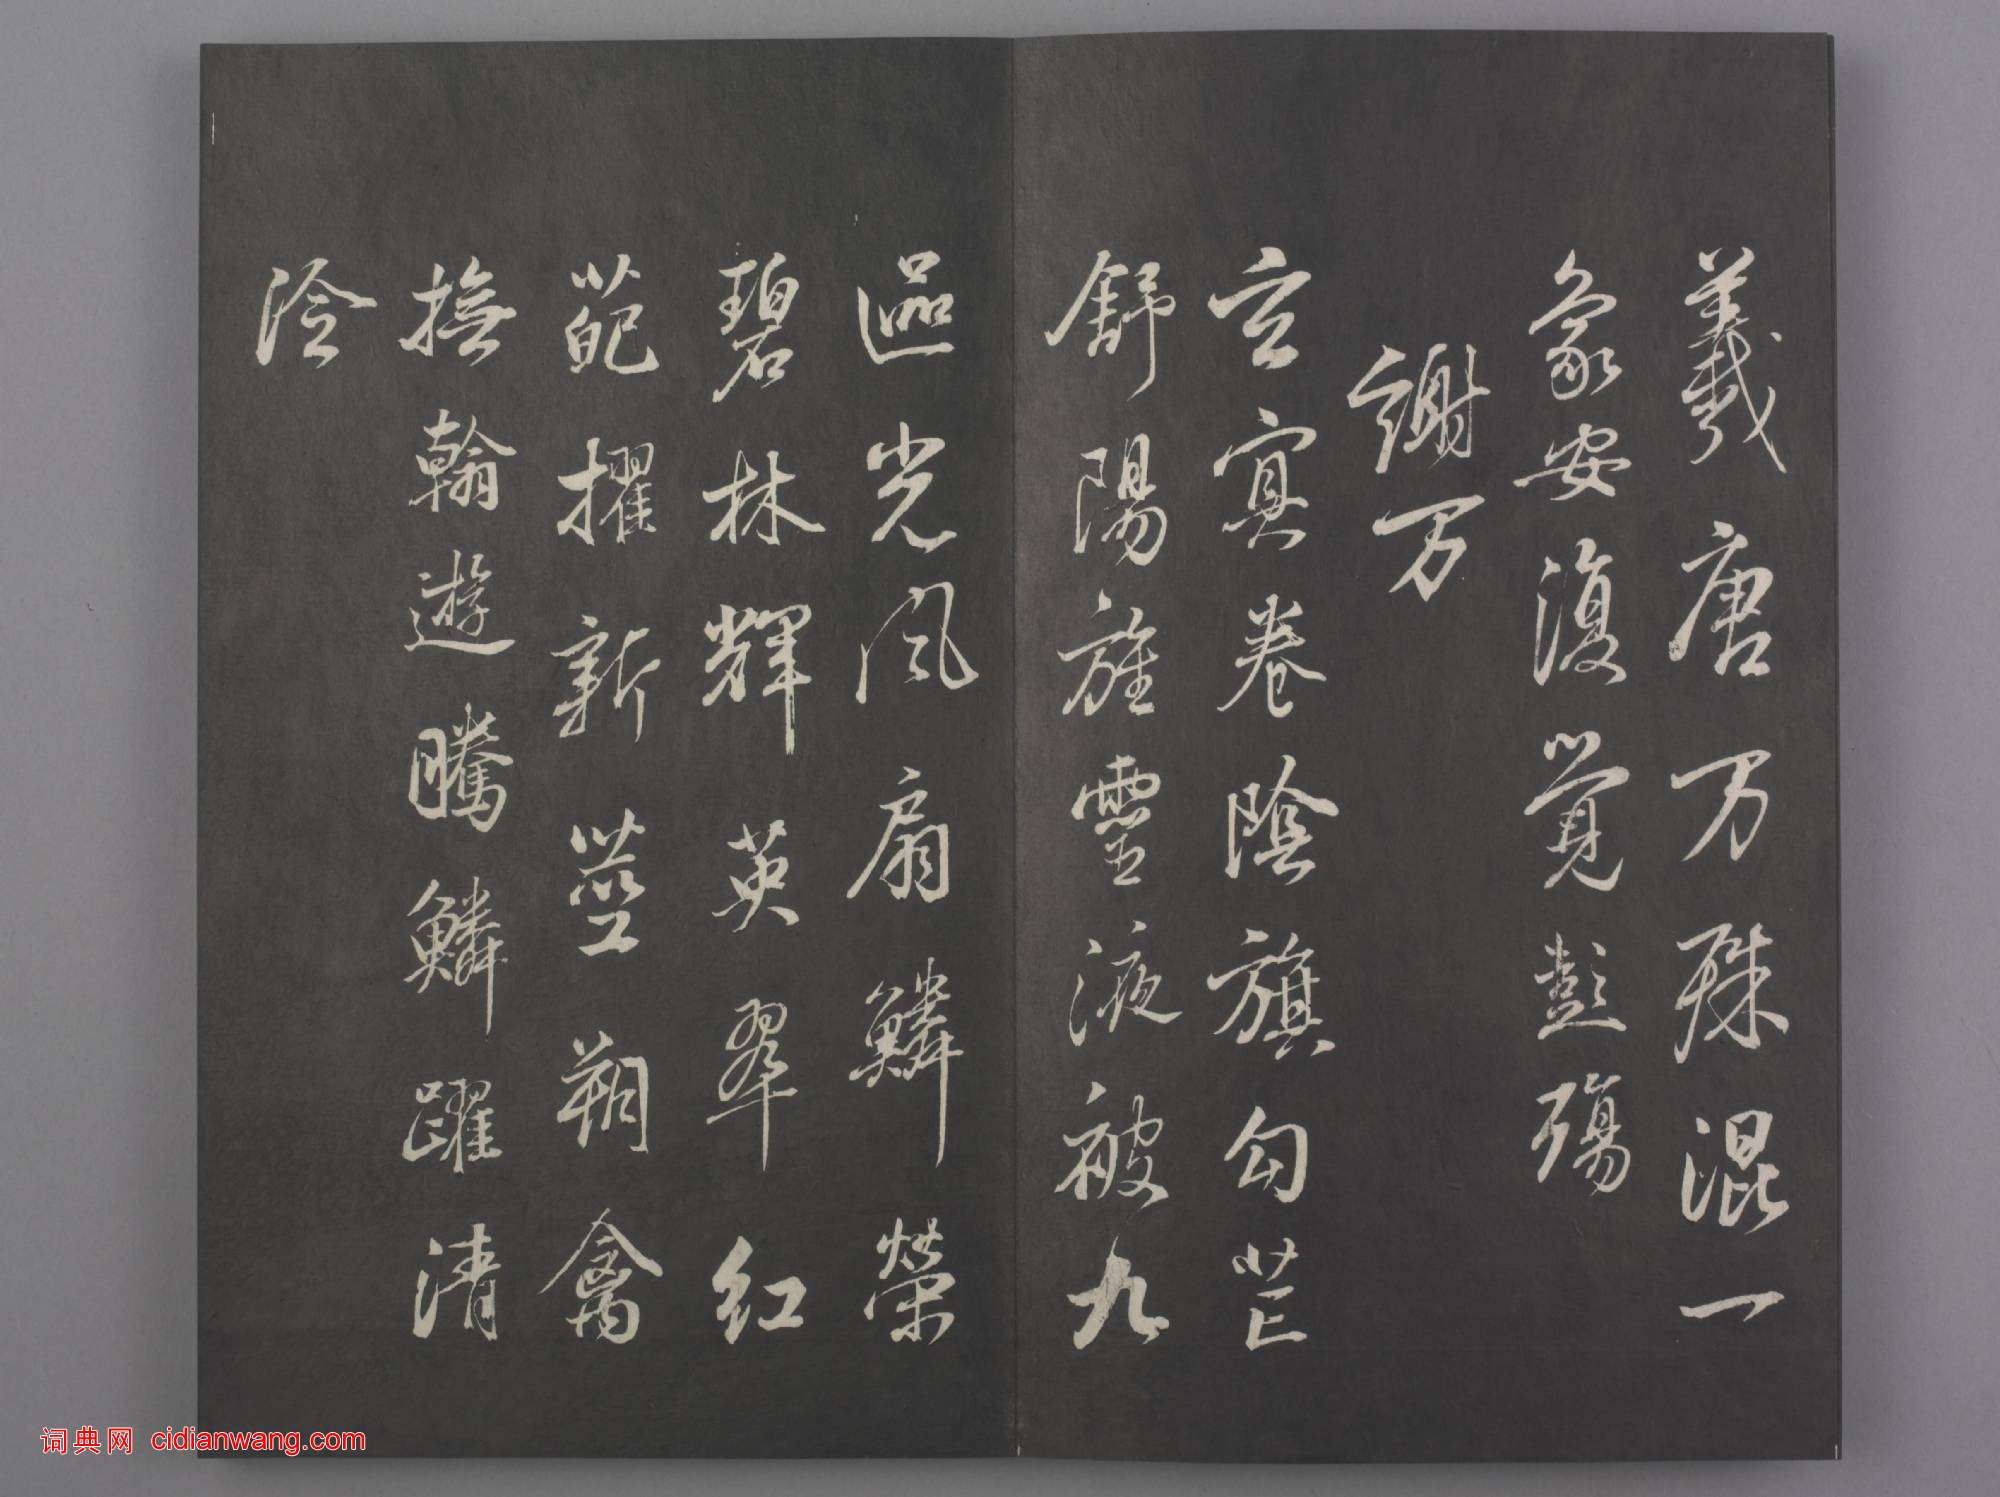 羲唐万殊混一
象安復覺彭殤
謝万
玄冥卷陰旗勾芒
舒陽旌靈液被九
區光風扇鱗榮
碧林輝英翠紅
葩擢新莖朔禽
撫翰遊騰鱗躍清
泠
词典网 cidianwang.com